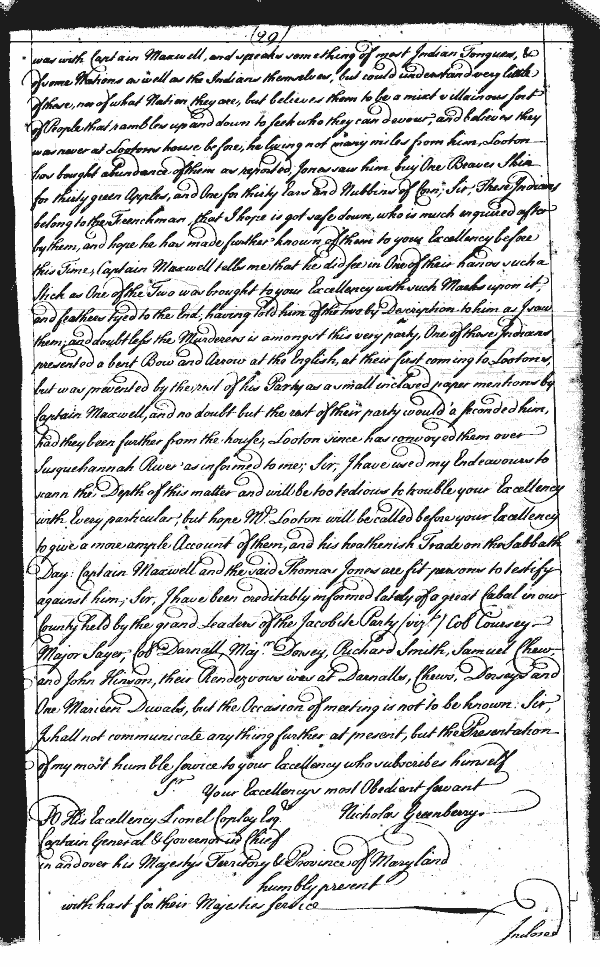 (29)
was with Captain Maxwell, and speaks something of most Indian Tongues, &
of some Nations as well as the Indians themselves, but could understand very little
of these, nor of what Nation they are, but believes them to be a mixt villainous sort
of People that rambles up and down to seek who they can devour, and believes they
was never at Lootons house before, he lying not many miles from him, Looton
has bought abundance of them as reported, Jones saw him buy One Beaver Skin
for thirty green Apples, and One for thirty Ears and Nubbins of Corn; Sir, These Indians
belong to the Frenchman, that I hope is got safe down, who is much enquired after
by them, and hope he has made further known of them to your Excellency before
this Time, Captain Maxwell tells me that he did see in One of their hands such a
Stick as One of the Two was brought to your Excellency with such Marks upon it,
and feathers tyed to the End, having told him of the two by Description to him as I saw
them; and doubtless the Murderers is amongst this very party, One of these Indians
presented a bent Bow and Arrow at the English, at their first coming to Lootons,
but was prevented by the rest of his Party as a small inclosed paper mentions by
Captain Maxwell, and no doubt but the rest of their party would 'a seconded him,
had they been further from the house, Looton since has convoyed them over
Susquehannah River as informed to me; Sir, I have used my Endeavours to
scann the Depth of this matter and will be too tedious to trouble your Excellency
with Every particular, but hope Mr. Looton will be called before your Excellency
to give a more ample Account of them, and his heathenish Trade on the Sabbath
Day: Captain Maxwell and the said Thomas Jones are fit persons to testify
against him; Sir, I have been creditably informed lately of a great Cabal in our
County held by the grand Leaders of the Jacobite Party (vizt.) Col Coursey
Major Sayer, Col Darnall, Majr. Dorsey, Richard Smith, Samuel Chew,
and John Hinson, their Rendezvous was at Darnalls, Chews, Dorseys and
One Mareen Duvals, but the Occasion of meeting is not to be known: Sir,
I shall not communicate any thing further at present, but the Presentation
of my most humble service to your Excellency who subscribes himself
Sr. Your Excellencys most Obedient servant
To His Excellency Lionel Copley Esqr. Nicholas Greenberry.
Captain General & Governor in Chief
in and over his Majestys Territory & Province of Maryland
humbly present
with hast for their Majesties Service
Inclosed